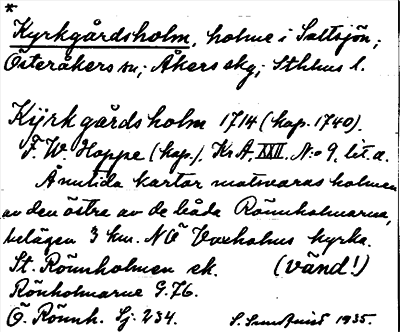 *
Kyrkgårdsholm, holme i Saltsjön;
Österåkers sn; Åkers skg; Sthlms l.
Kÿrkgårdsholm 1714 (kop. 1740).
F. W. Hoppe (kop.), Kr A, XXII. N:o 9. lit. a.
Å nutida kartor motsvaras holmen
av den östra av de båda Rönnholmarna,
belägen 3 km. NÖ Vaxholms kyrka.
St. Rönnholmen ek. (vänd!)
Rönholmarne G.76.
Ö. Rönnh. Sj: 234. S. Sundquist 1935.